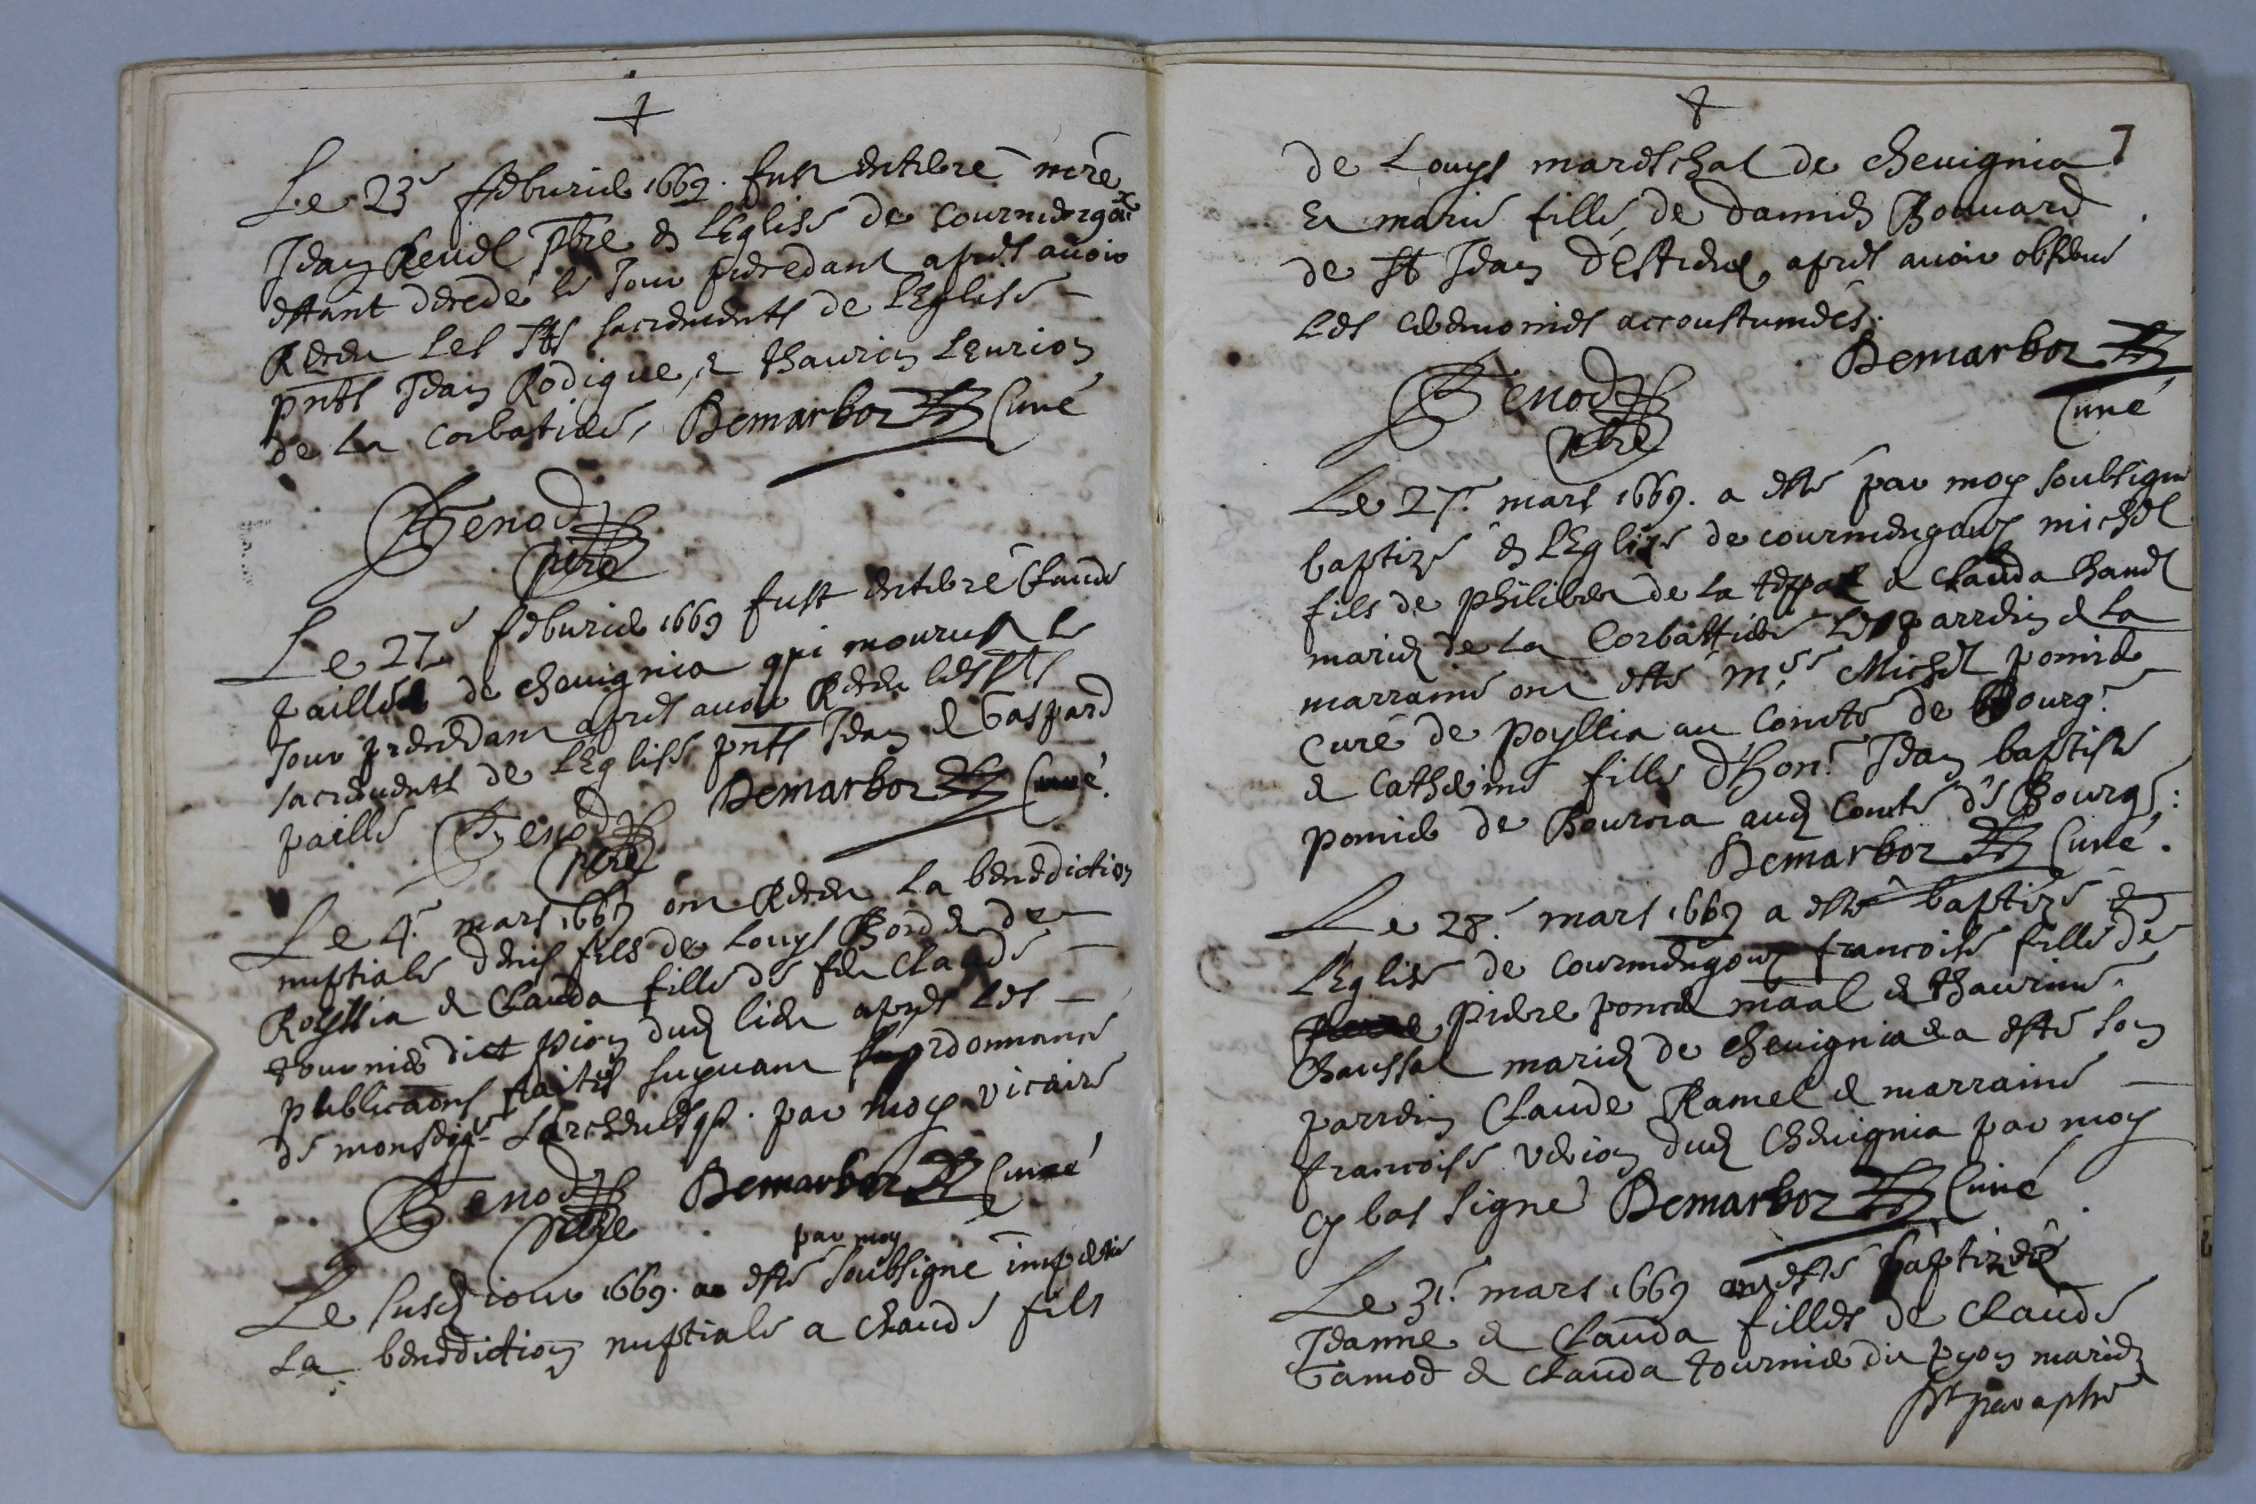 Le 23e febvrier 1669. fust enterré mre
Jean Revel pbre en L'Eglise de Courmangoux
estant decedé le Jour precedant apres avoir
Receu les Sts sacrements de L'Eglise
pnts Jean Rodigue, & Thaurin Leurion
de La Corbatiere, Demarboz Curé
Genod
pbre
Le 27e febvrier 1669 fust enterré Claude
paille de chevignia qui mourust le
Jour precedant apres avoir Receu les Sts
sacrements de L'Eglise pnts Jean & Gaspard
paille Genod Demarboz Curé.
pbre
Le 4e mars 1669 ont Receu La benediction
nuptiale denis fils de Louys Bordet de
Royssia & Clauda fille de feu Claude
tournier dict pion dud lieu apres les
publicaons faites suyvant L'ordonnance
de monseigr Larchevesqe. par moy vicaire
Genod Demarboz Curé
pbre
par moy
Le susd jour 1669. a esté soubsigné impartie
La benediction nuptiale a Claude fils
7
de Louys mareschal de chevignia
Et marie fille de damien Bouvard
de St Jean d'Estreux apres avoir observé
Les ceremonies accoustumées.
Demarboz
Genod Curé
pbre
Le 27e mars 1669. a esté par moy soubsigné
baptizé en L'Eglise de courmangoux michel
fils de philibert de la teppe & Clauda hanel
mariez de La Corbattiere Le parrein & La
marraine ont esté Mre Michel pomier
Curé de poyllia au Comté de Bourge
& Catherine fille d'hone Jean baptiste
pomier de Bourcia aud Comté de Bourge:
Demarboz Curé.
Le 28e mars 1669 a esté baptizé en
L'Eglise de Courmangoux francoise fille de
pierre poncet maal & thaurine
Chaussat mariez de chevignia & a esté son
parrein Claude Ramel & marraine
francoise verion dud Chevignia par moy
cy bas signé Demarboz Curé
Le 31e mars 1669 ont esté baptizées
Jeanne & Clauda filles de Claude
Gamod & Clauda tournier dit pyon mariez
paraphé